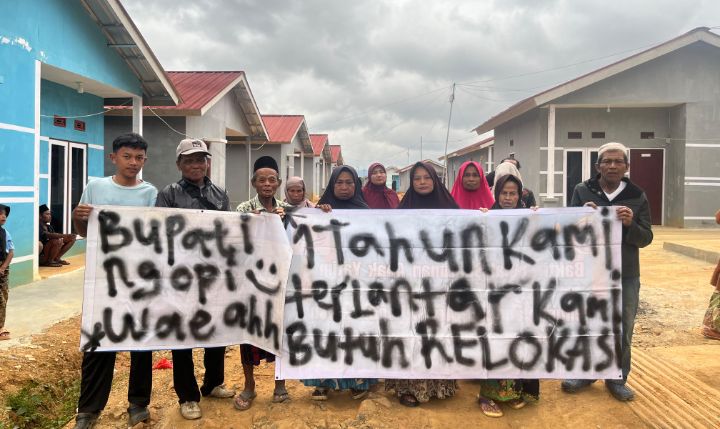 Bupati
Ngopi
Wae ahh
Tahun Kami
terlantar Kami
Butuh RELOKASI